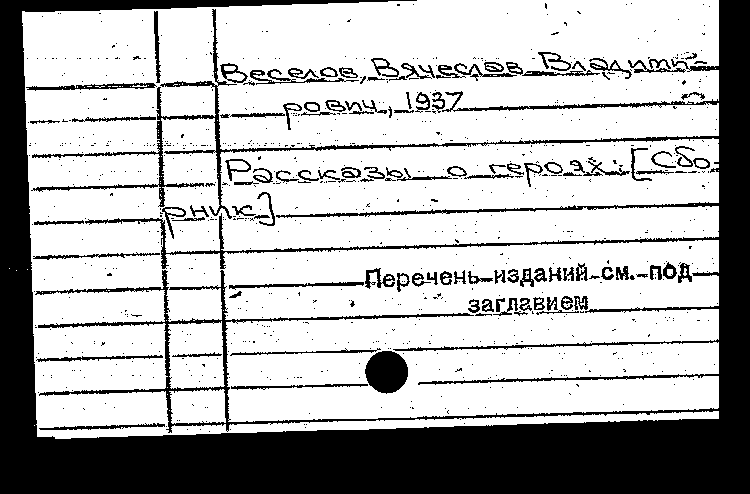 Веселов, Вячеслав Владими-
рович, 1937
Рассказы о героях: [Сбо-
рник]
Перечень изданий см. под
заглавием